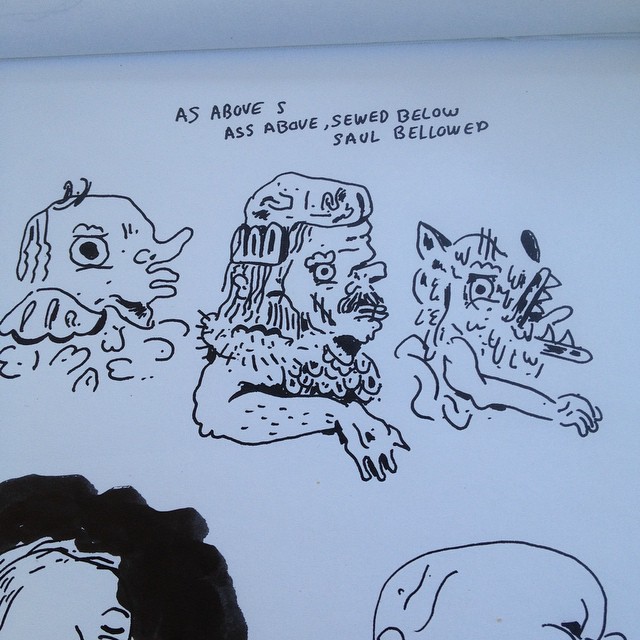 AS ABOVE S
ASS ABOVE, SEWED BELOW
SAUL BELLOWED